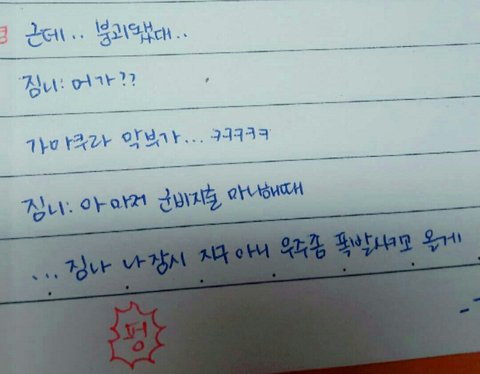 근데.. 붕괴됐대..
짐니: 머가??
가마쿠라 막부가... ㅋㅋㅋㅋㅋ
짐니: 아 마저 군비지출 마니해때
... 징나 나 잠시 지구 아니 우주좀 폭발시키고 올게
펑